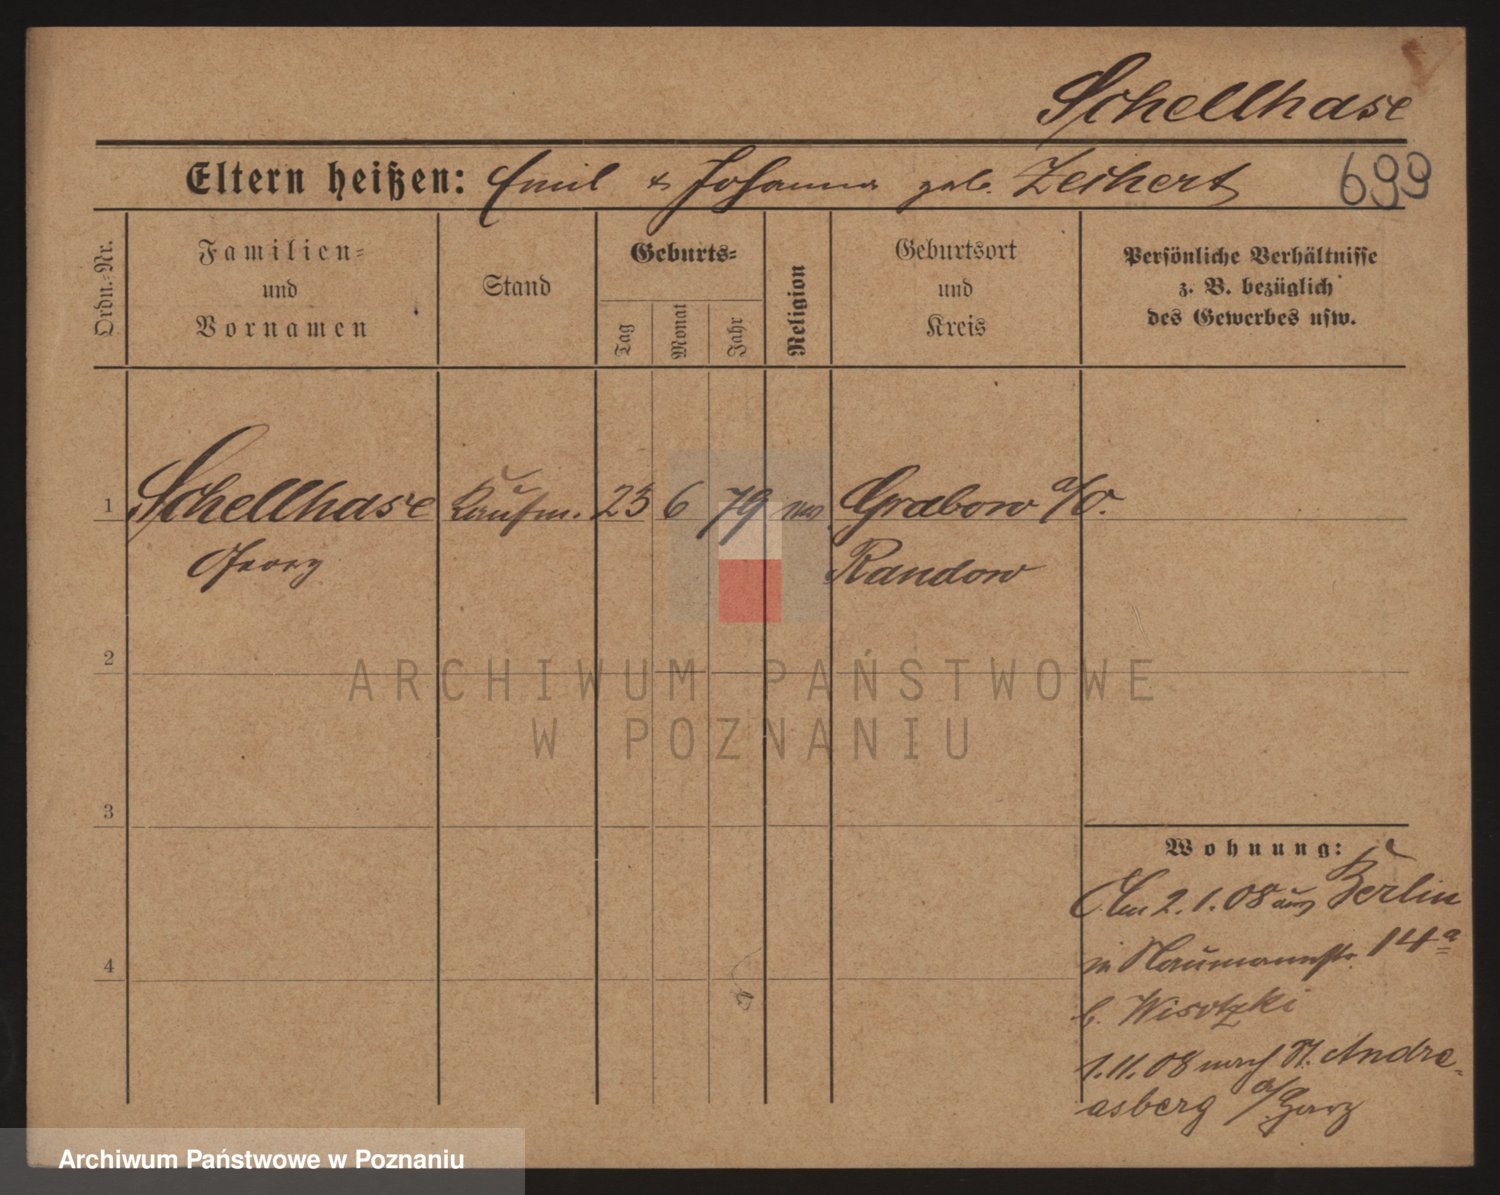 Schellhase
Eltern heißen: Emil & Johanna geb. Zeihert
699
Ordn.-Nr.
Familien-
und
Vornamen
Stand
Geburts-
Tag
Monat
Jahr
Religion
Geburtsort
und
Kreis
Persönliche Verhältnisse
z. B. bezüglich
des Gewerbes usw.
1
Schellhase Kaufm. 23 6 79 Grabow a/O.
Georg Randow
2
ARCHIWUM PAŃSTWOWE
W POZNANIU
3
Wohnung:
Am 2.1.08 aus Berlin
in Naumannstr. 14a
b. Wisotzki
1.11.08 nach St. Andre-
asberg a/Harz
4
Archiwum Państwowe w Poznaniu